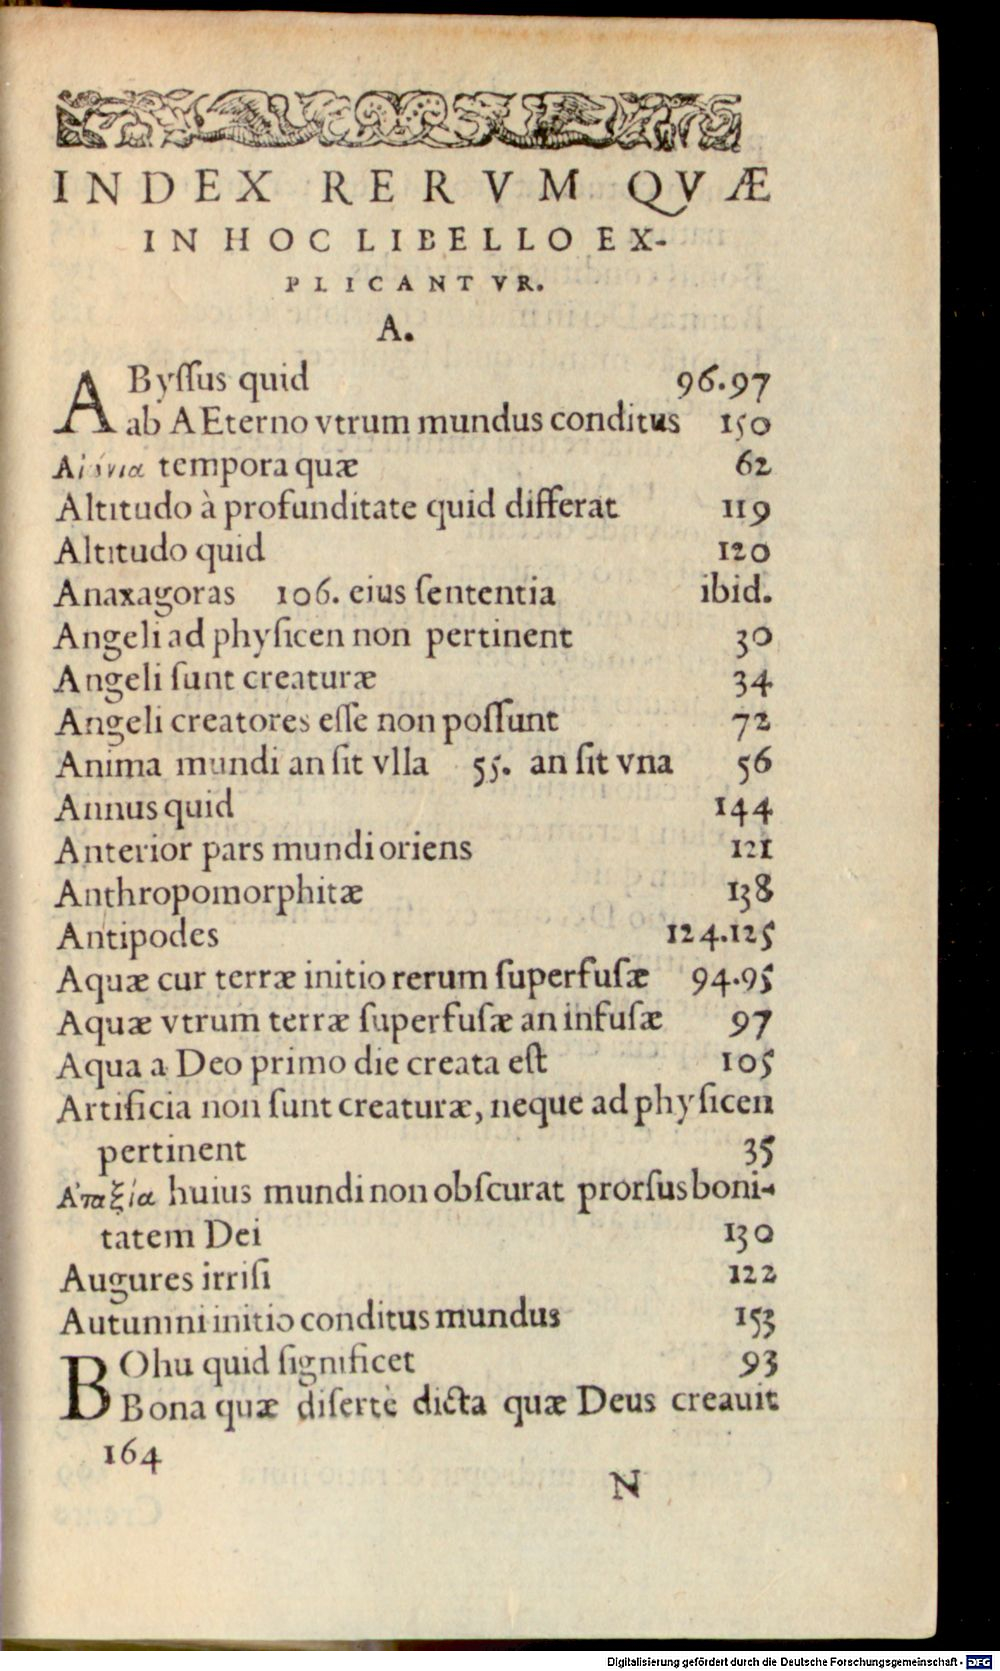 INDEX RERVM QVÆ
IN HOC LIBELLO EX-
PLICANTVR.
A.
AByſſus quid 96.97
ab AEterno vtrum mundus conditus 150
Αἰώνια tempora quæ 62
Altitudo à profunditate quid differat 119
Altitudo quid 120
Anaxagoras 106. eius ſententia ibid.
Angeli ad phyſicen non pertinent 30
Angeli ſunt creaturæ 34
Angeli creatores eſſe non poſſunt 72
Anima mundi an ſit vlla 55. an ſit vna 56
Annus quid 144
Anterior pars mundi oriens 121
Anthropomorphitæ 138
Antipodes 124.125
Aquæ cur terræ initio rerum ſuperfuſæ 94.95
Aquæ vtrum terræ ſuperfuſæ an infuſæ 97
Aqua a Deo primo die creata eſt 105
Artificia non ſunt creaturæ, neque ad phyſicen
pertinent 35
Ἀταξία huius mundi non obſcurat prorſus boni-
tatem Dei 130
Augures irriſi 122
Autumni initio conditus mundus 153
BOhu quid ſignificet 93
Bona quæ diſertè dicta quæ Deus creauit
164
N
Digitalisierung gefördert durch die Deutsche Forschungsgemeinschaft - DFG